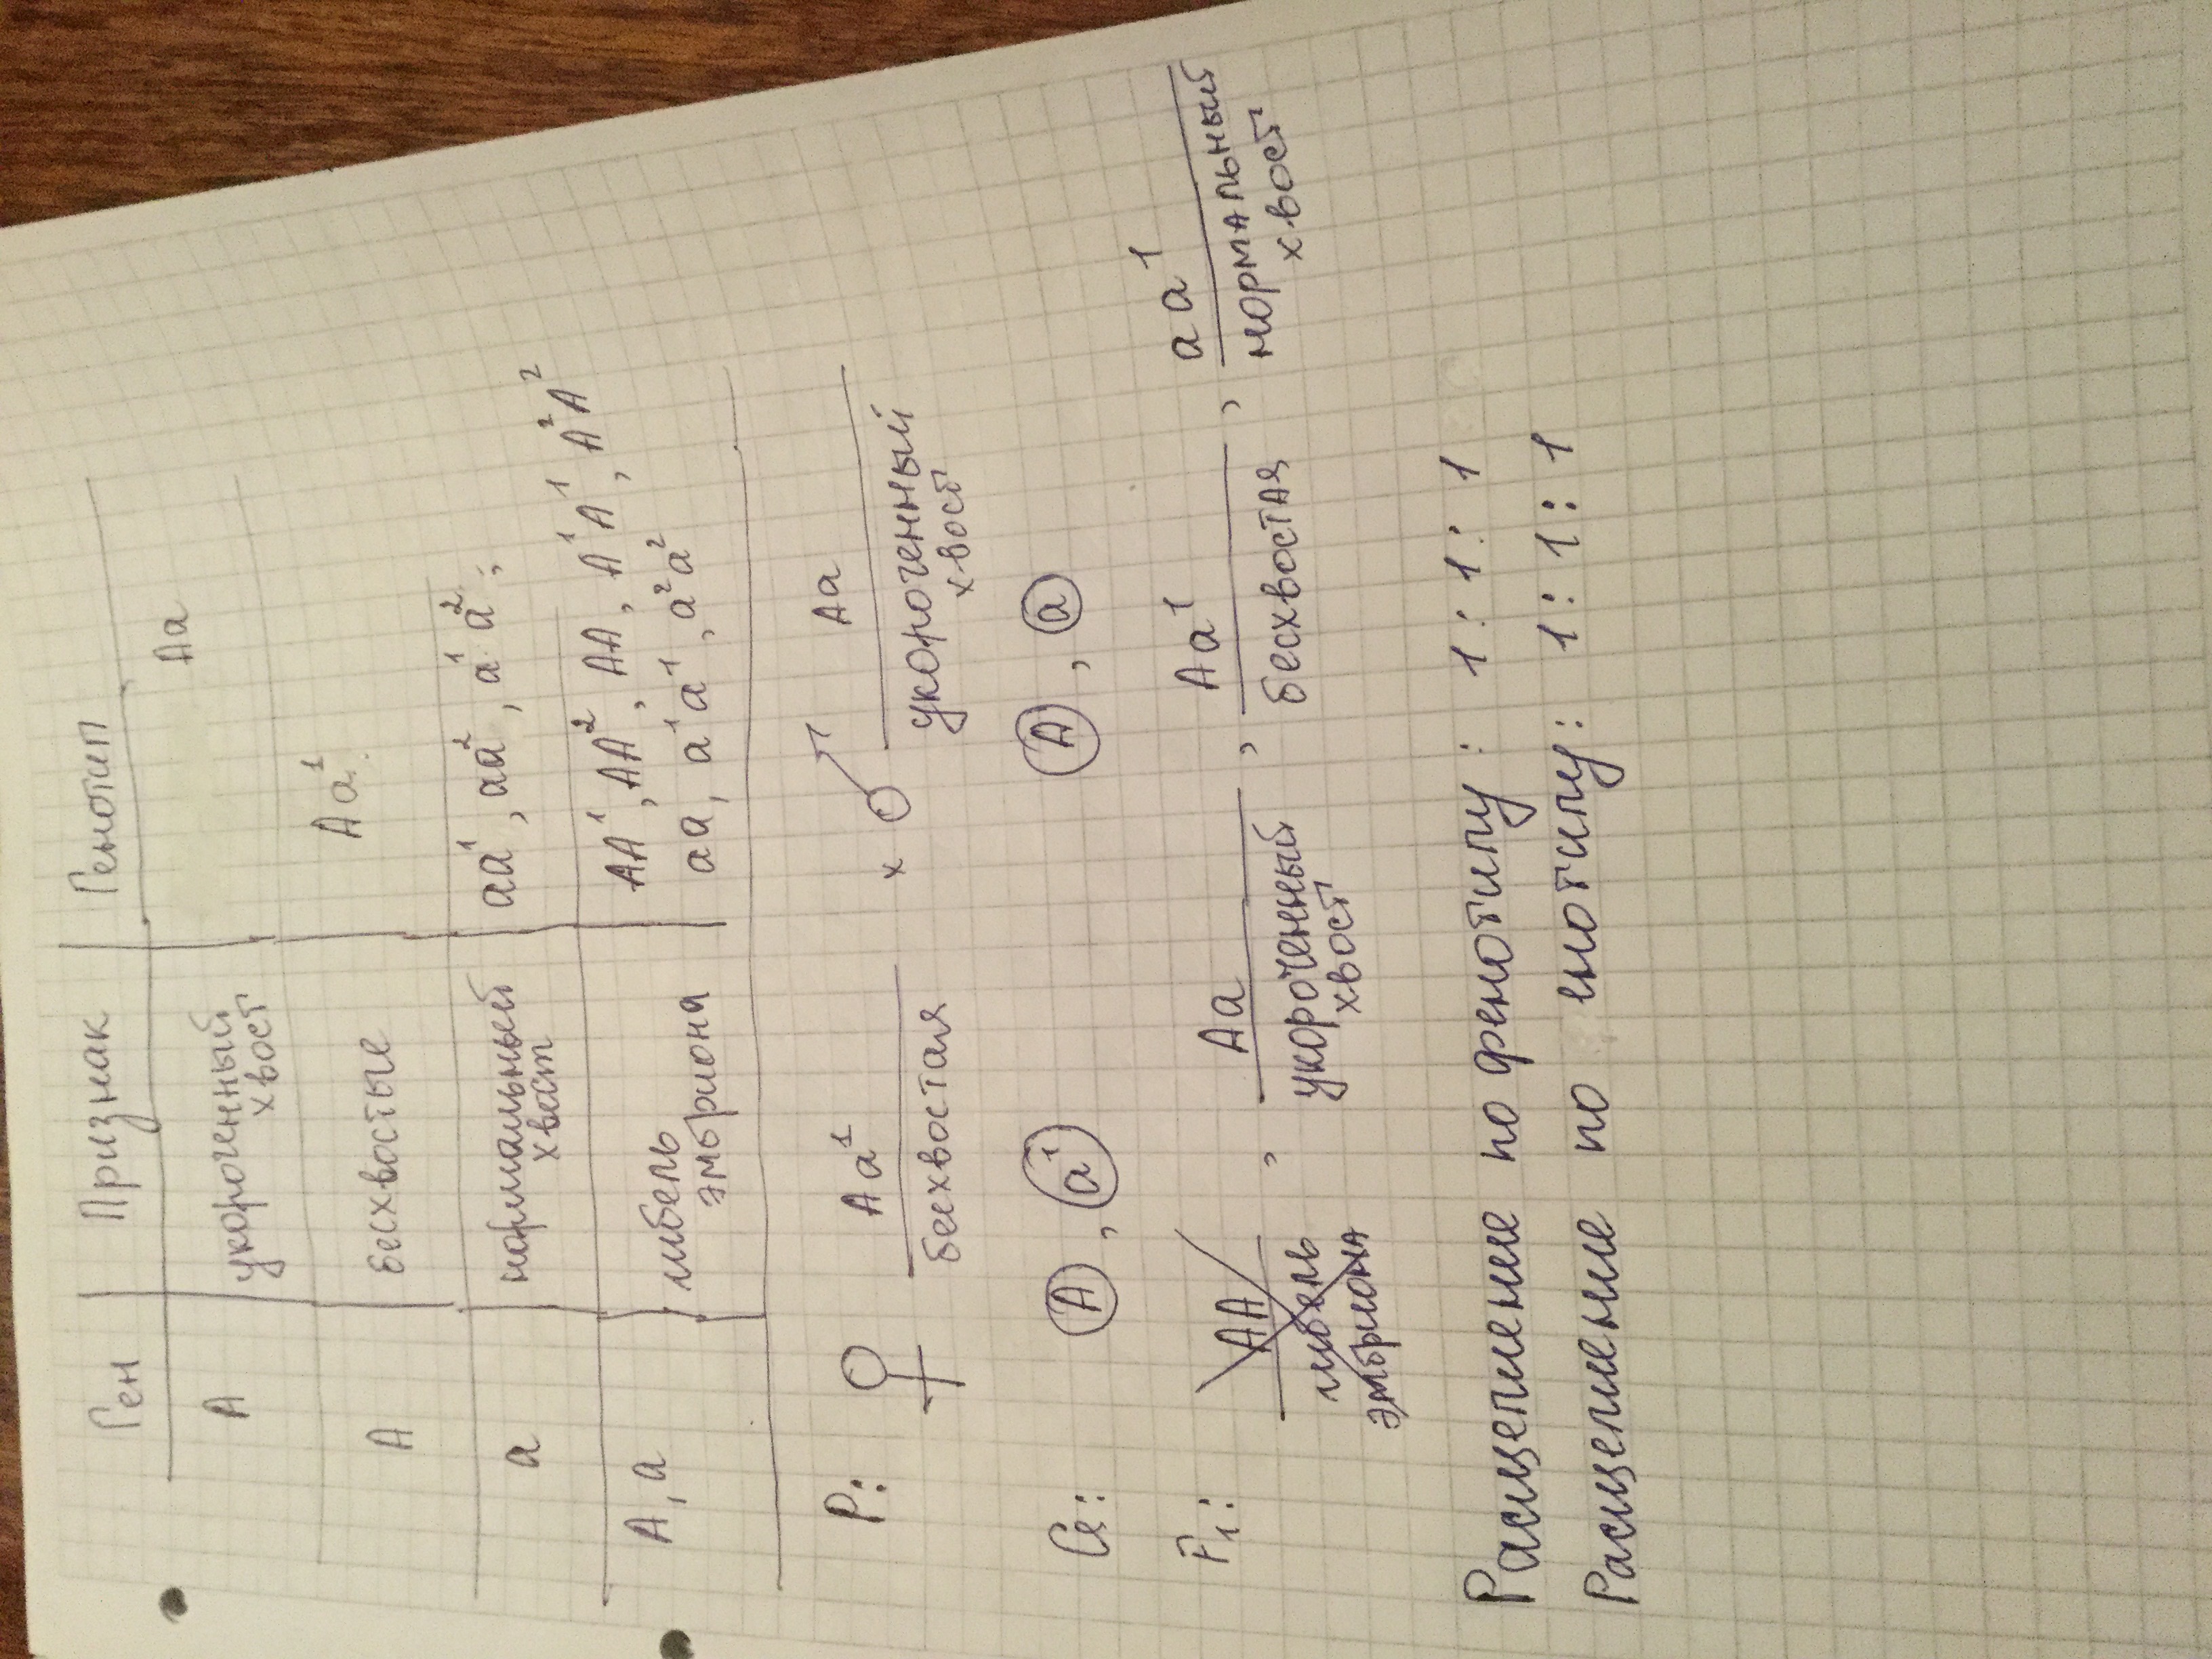 Ген Признак Генотип
A укороченный хвост Aa
A бесхвостые Aa¹
a нормальный хвост aa¹, aa², a¹a²;
A, a гибель эмбриона AA¹, AA², AA, A¹A¹, A²A²
aa, a¹a¹, a²a²
P: ♀ Aa¹ x ♂ Aa
бесхвостая укороченный хвост
G: A, a¹ A, a
F₁: AA, Aa, Aa¹, aa¹
гибель эмбриона укороченный хвост бесхвостая нормальный хвост
Расщепление по фенотипу: 1:1:1
Расщепление по енотипу: 1:1:1